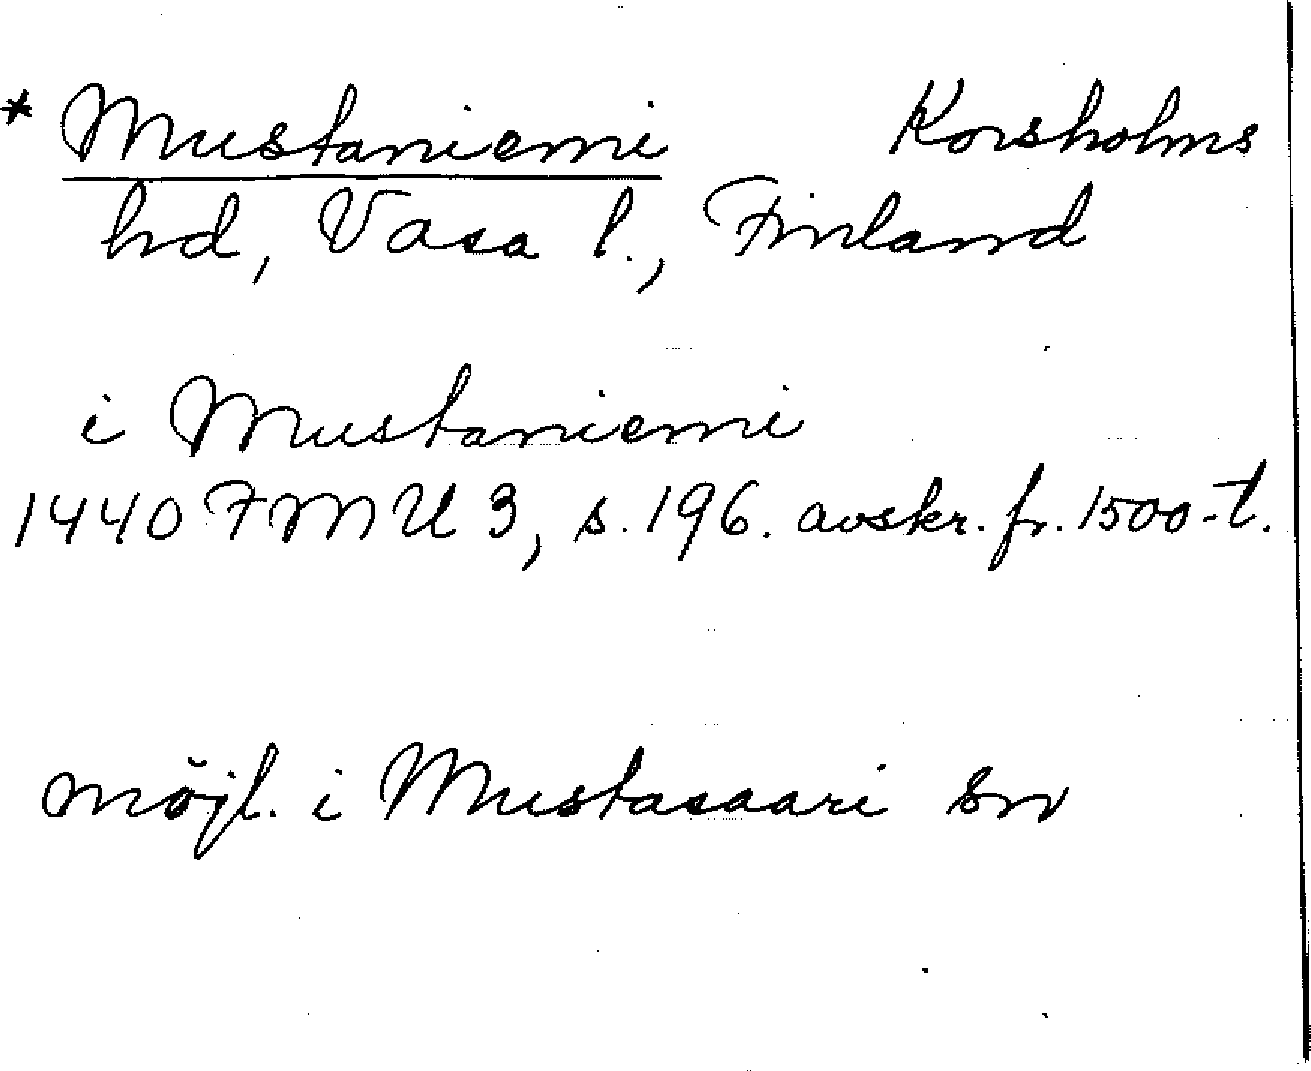 * Mustaniemi Korsholms
hd, Vasa l., Finland
i Mustaniemi
1440 FMU 3, s. 196. avskr. fr. 1500-t.
möjl. i Mustasaari sn